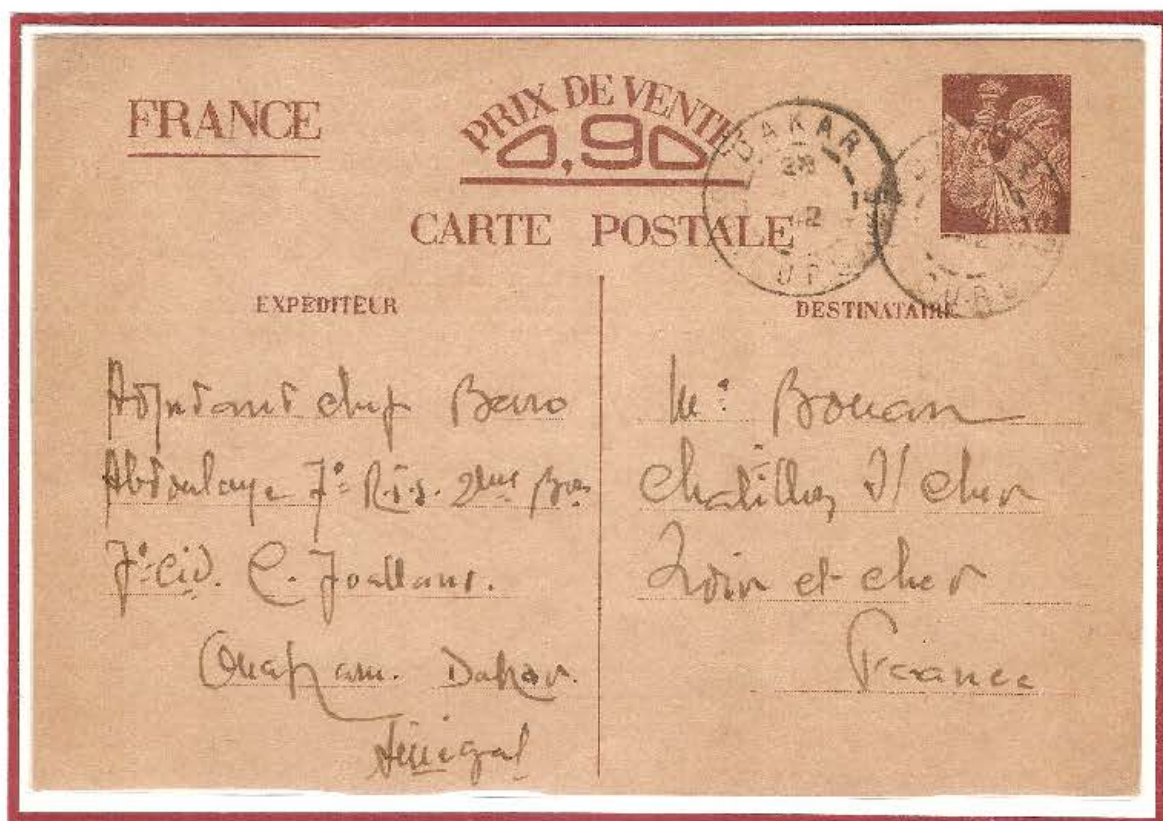 FRANCE
PRIX DE VENTE
0,90
CARTE POSTALE
DAKAR
28
EXPÉDITEUR
DESTINATAIRE
Adjudant chef Baro
Abdoulaye 7e R.T.S. 2eme Bon
7e Cie. C. Joalland.
Ouakam. Dakar.
Sénégal
Mr Bouan
Chatillon s/ Cher
Loir et cher
France